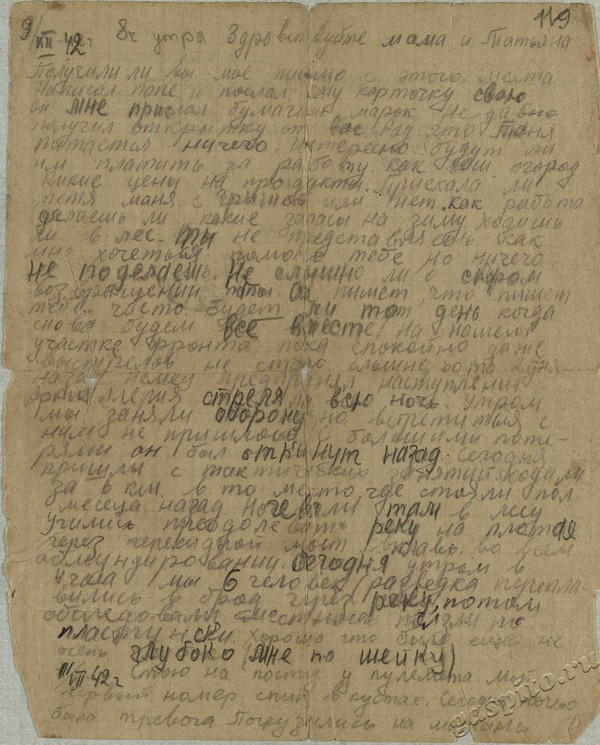 119
9/VII 42 г 8ч утра Здравствуйте мама и Татьяна
Получили ли вы мое письмо с этого места
Написал папе и послал ему карточку свою
он мне прислал бумаги и марок Недавно
получил открытку от вас Рад что Таня
питается ничего. Интересно будут ли
им платить за работу. как ваш огород
Какие цены на продукты. Приехала ли
тетя маня с или нет как работа
делаешь ли какие запасы на зиму ходишь
ли в лес. ты не представляешь как
мне хочеться помочь тебе но ничего
не поделаешь. Не слышно ли о скором
возвращении папы Он пишет, что пишет
тебе часто будет ли тот день когда
снова будем все вместе. На нашем
участке фронта пока спокойно даже
выстрелов не стало слышно хотя дня
назад немец предпринял наступление
артиллерия стреляла всю ночь. Утром
мы заняли оборону но встретиться с
ним не пришлось с большими поте-
рями он был откинут назад. Сегодня
пришли с тактических занятий ходили
за 8 км. в то место, где стояли пол
месеца назад ночевали там в лесу
Учились преодолевать реку на плотах
через мост вплавь во всем
обмундировании. Сегодня утром в
4 часа мы 6 человек (разведка перепра-
вились в брод через реку, потом
обследовали местность ползли по
пластунски. Хорошо что было еще не
очень глубоко (мне по шейку)
11/VII 42 г Стою на посту у пулемета мой
первый номер спит в кустах. Сегодня ночью
была тревога Погрузились на машины
gaspiko.ru